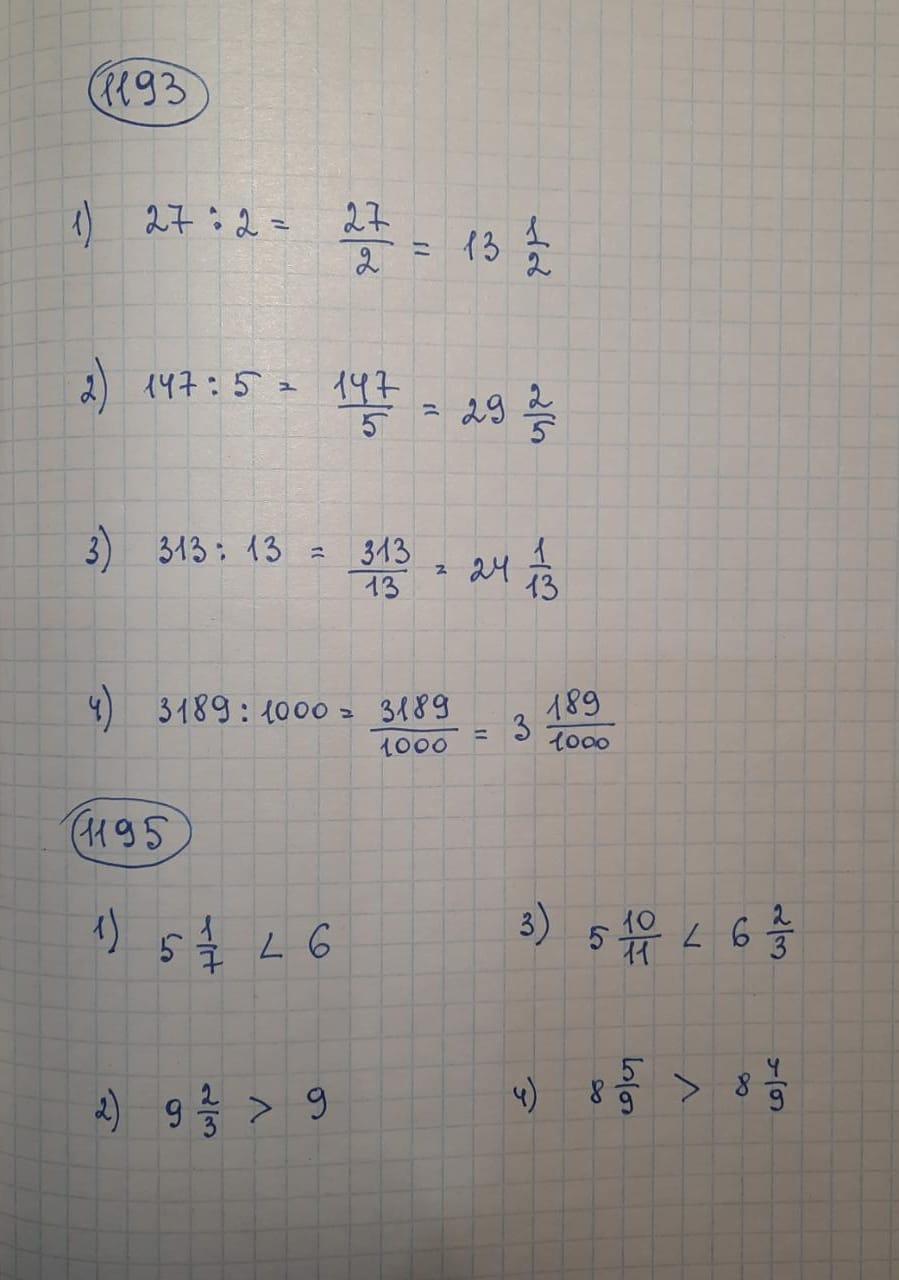 1193
1) 27 : 2 = 27/2 = 13 1/2
2) 147 : 5 = 147/5 = 29 2/5
3) 313 : 13 = 313/13 = 24 1/13
4) 3189 : 1000 = 3189/1000 = 3 189/1000
1195
1) 5 1/7 < 6
3) 5 10/11 < 6 2/3
2) 9 2/3 > 9
4) 8 5/9 > 8 4/9